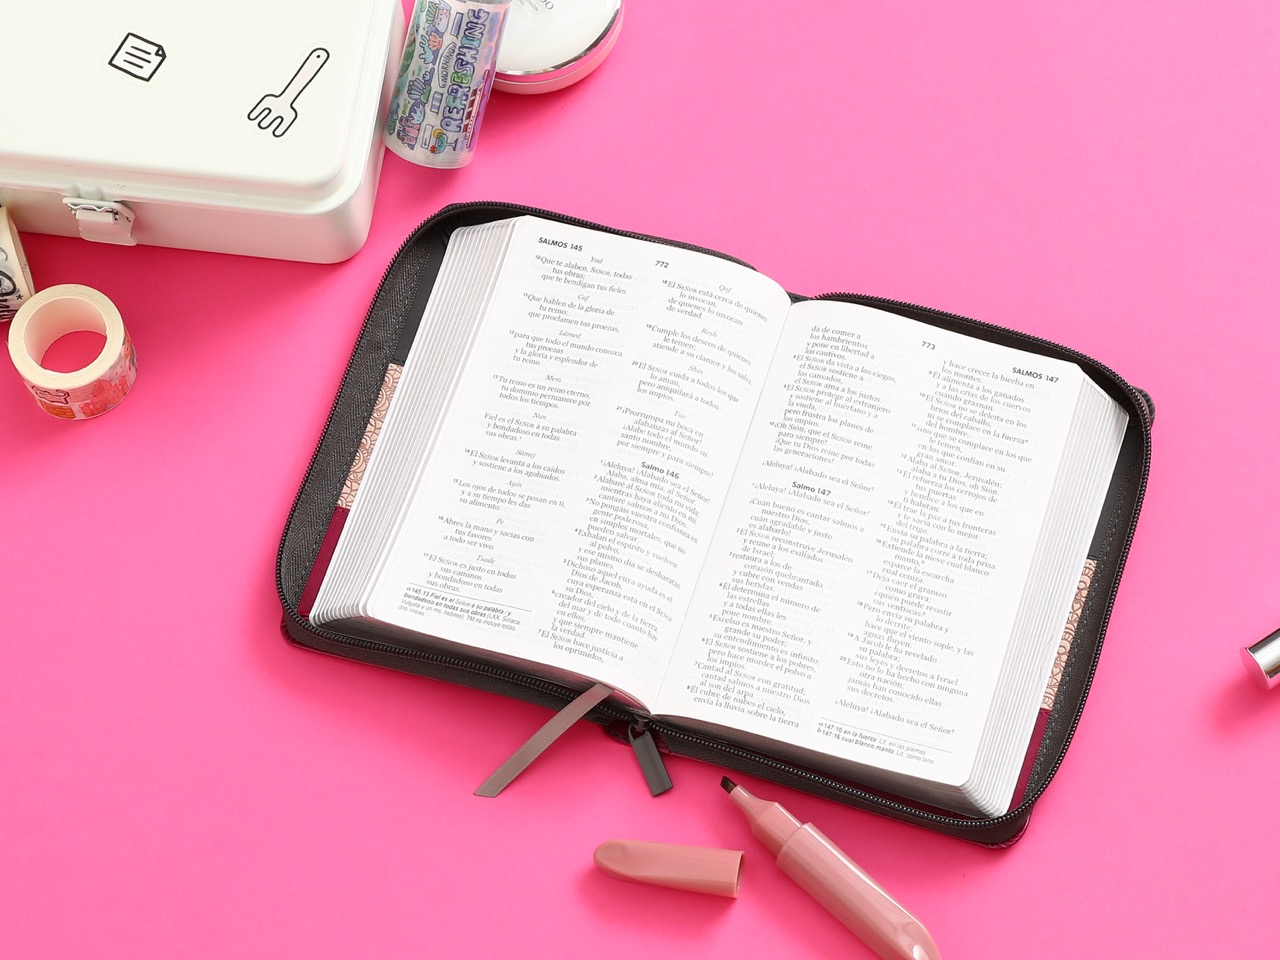 REFRESHING
MORNING
SALMOS 145
772
Yod
10Que te alaben, SEÑOR, todas
tus obras;
que te bendigan tus fieles.
Caf
11Que hablen de la gloria de
tu reino;
que proclamen tus proezas,
Lámed
12para que todo el mundo conozca
tus proezas
y la gloria y esplendor de
tu reino.
Mem
13Tu reino es un reino eterno;
tu dominio permanece por
todos los tiempos.
Nun
Fiel es el SEÑOR a su palabra
y bondadoso en todas
sus obras.a
Sámej
14El SEÑOR levanta a los caídos
y sostiene a los agobiados.
Ayin
15Los ojos de todos se posan en ti,
y a su tiempo les das
su alimento.
Pe
16Abres la mano y sacias con
tus favores
a todo ser vivo.
Tsade
17El SEÑOR es justo en todos
sus caminos
y bondadoso en todas
sus obras.
a 145:13 Fiel es el SEÑOR a su palabra / y
bondadoso en todas sus obras (LXX, Siríaca,
Vulgata y un ms. hebreo); TM no incluye estas
dos líneas.
Qof
18El SEÑOR está cerca de quienes
lo invocan,
de quienes lo invocan
de verdad.
Resh
19Cumple los deseos de quienes
le temen;
atiende a su clamor y los salva.
Shin
20El SEÑOR cuida a todos los que
lo aman,
pero aniquilará a todos
los impíos.
Tav
21¡Prorrumpa mi boca en
alabanzas al SEÑOR!
¡Alabe todo el mundo su
santo nombre,
por siempre y para siempre!
Salmo 146
1¡Aleluya! ¡Alabado sea el SEÑOR!
Alaba, alma mía, al SEÑOR.
2Alabaré al SEÑOR toda mi vida;
mientras haya aliento en mí,
cantaré salmos a mi Dios.
3No pongáis vuestra confianza en
gente poderosa,
en simples mortales, que no
pueden salvar.
4Exhalan el espíritu y vuelven
al polvo,
y ese mismo día se desbaratan
sus planes.
5Dichoso aquel cuya ayuda es el
Dios de Jacob,
cuya esperanza está en el SEÑOR
6creador del cielo y de la tierra,
del mar y de todo cuanto hay
en ellos,
y que siempre mantiene
la verdad.
7El SEÑOR hace justicia a
los oprimidos,
773
SALMOS 147
da de comer a
los hambrientos
y pone en libertad a
los cautivos.
8El SEÑOR da vista a los ciegos,
el SEÑOR sostiene a
los cansados,
el SEÑOR ama a los justos.
9El SEÑOR protege al extranjero
y sostiene al huérfano y a
la viuda,
pero frustra los planes de
los impíos.
10¡Oh Sión, que el SEÑOR reine
para siempre!
¡Que tu Dios reine por todas
las generaciones!
¡Aleluya! ¡Alabado sea el SEÑOR!
Salmo 147
1¡Aleluya! ¡Alabado sea el SEÑOR!
¡Cuán bueno es cantar salmos a
nuestro Dios,
cuán agradable y justo
es alabarlo!
2El SEÑOR reconstruye Jerusalén
y reúne a los exiliados
de Israel;
3restaura a los de
corazón quebrantado
y cubre con vendas
sus heridas.
4Él determina el número de
las estrellas
y a todas ellas les
pone nombre.
5Excelso es nuestro Señor, y
grande su poder;
su entendimiento es infinito.
6El SEÑOR sostiene a los pobres,
pero hace morder el polvo a
los impíos.
7Cantad al SEÑOR con gratitud;
cantad salmos a nuestro Dios
al son del arpa.
8Él cubre de nubes el cielo,
envía la lluvia sobre la tierra
y hace crecer la hierba en
los montes.
9Él alimenta a los ganados
y a las crías de los cuervos
cuando graznan.
10El SEÑOR no se deleita en los
bríos del caballo,
ni se complace en la fuerzaa
del hombre,
11sino que se complace en los que
le temen,
en los que confían en su
gran amor.
12Alaba al SEÑOR, Jerusalén;
alaba a tu Dios, oh Sión.
13Él refuerza los cerrojos de
tus puertas
y bendice a los que en
ti habitan.
14Él trae la paz a tus fronteras
y te sacia con lo mejor
del trigo.
15Envía su palabra a la tierra;
su palabra corre a toda prisa.
16Extiende la nieve cual blanco
manto,b
esparce la escarcha
cual ceniza.
17Deja caer el granizo
como grava;
¿quién puede resistir
sus ventiscas?
18Pero envía su palabra y
lo derrite;
hace que el viento sople, y las
aguas fluyen.
19A Jacob le ha revelado
su palabra;
sus leyes y decretos a Israel.
20Esto no lo ha hecho con ninguna
otra nación;
jamás han conocido ellas
sus decretos.
¡Aleluya! ¡Alabado sea el SEÑOR!
a 147:10 en la fuerza. Lit. en las piernas.
b 147:16 cual blanco manto. Lit. como lana.